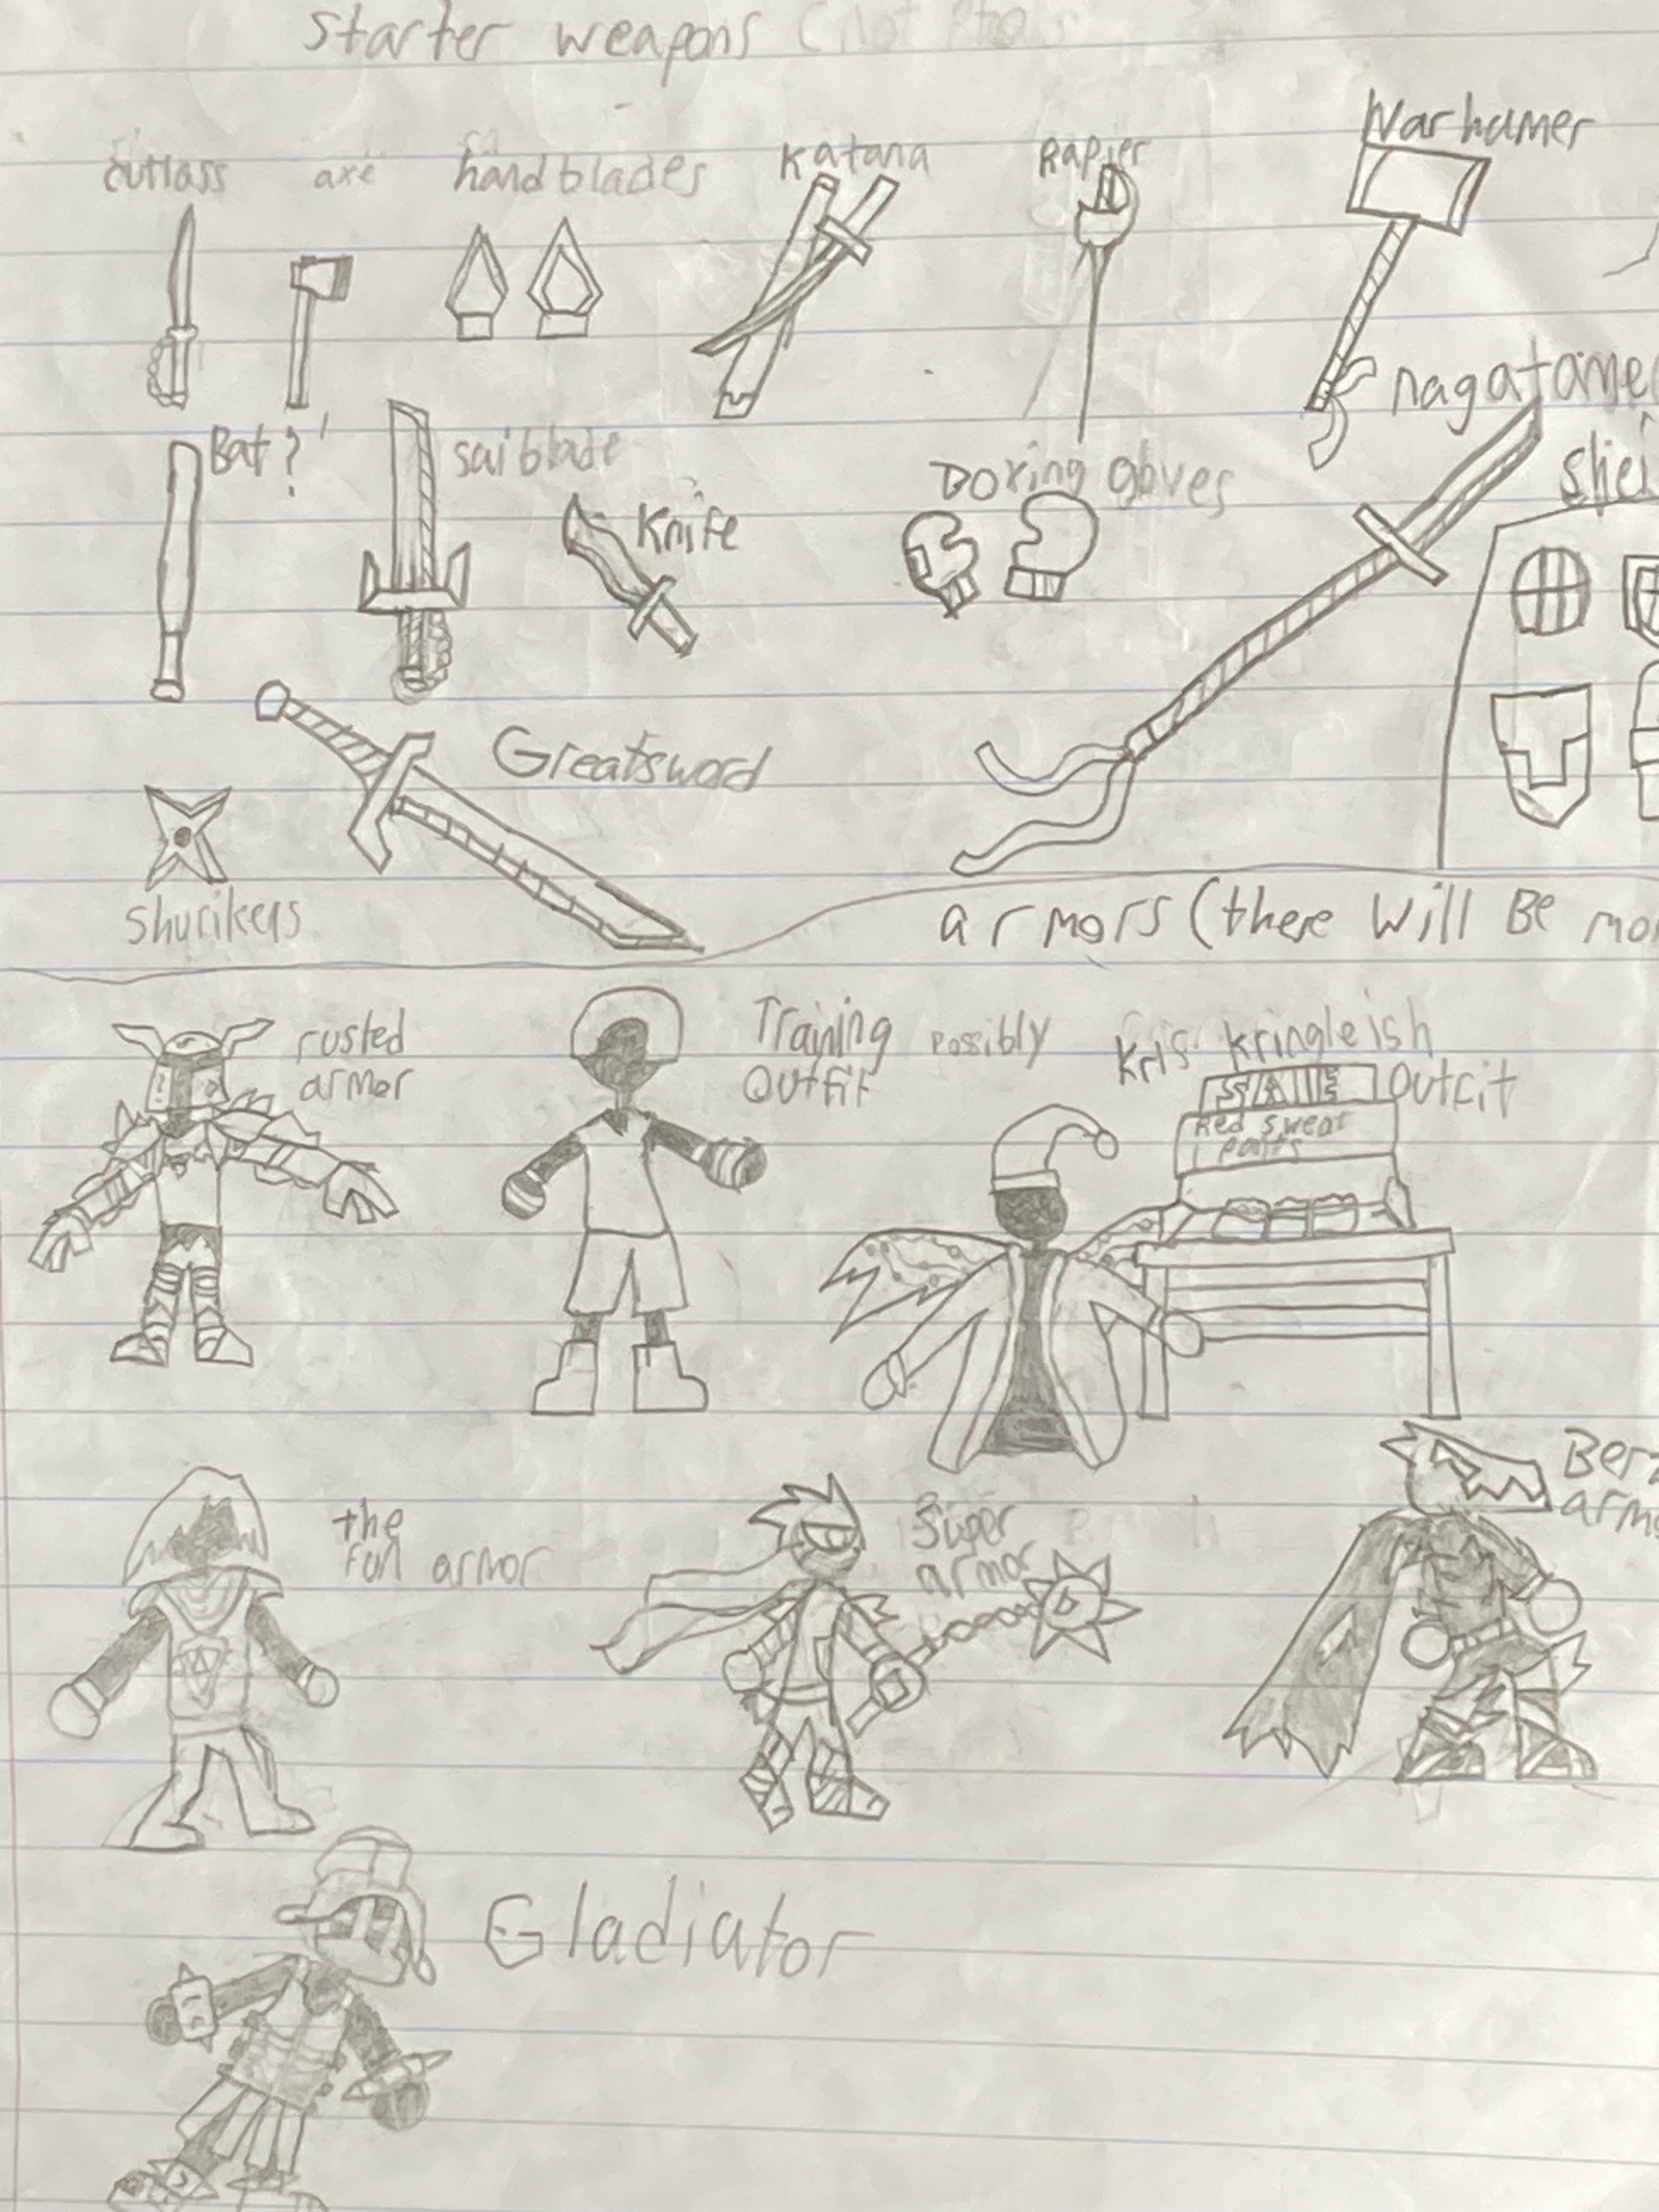 Starter weapons (not
cutlass axe hand blades Katana Rapier Warhamer
nagatame
Bat? sai blade Knife Boxing gloves shei
Greatsword
shurikens
armors (there will Be mor
rusted
armor
Training
Outfit
Possibly Kris kringleish
Outfit
SALE
Red sweat
pants
the
fun armor
Super
armor
Ber
arm
Gladiator